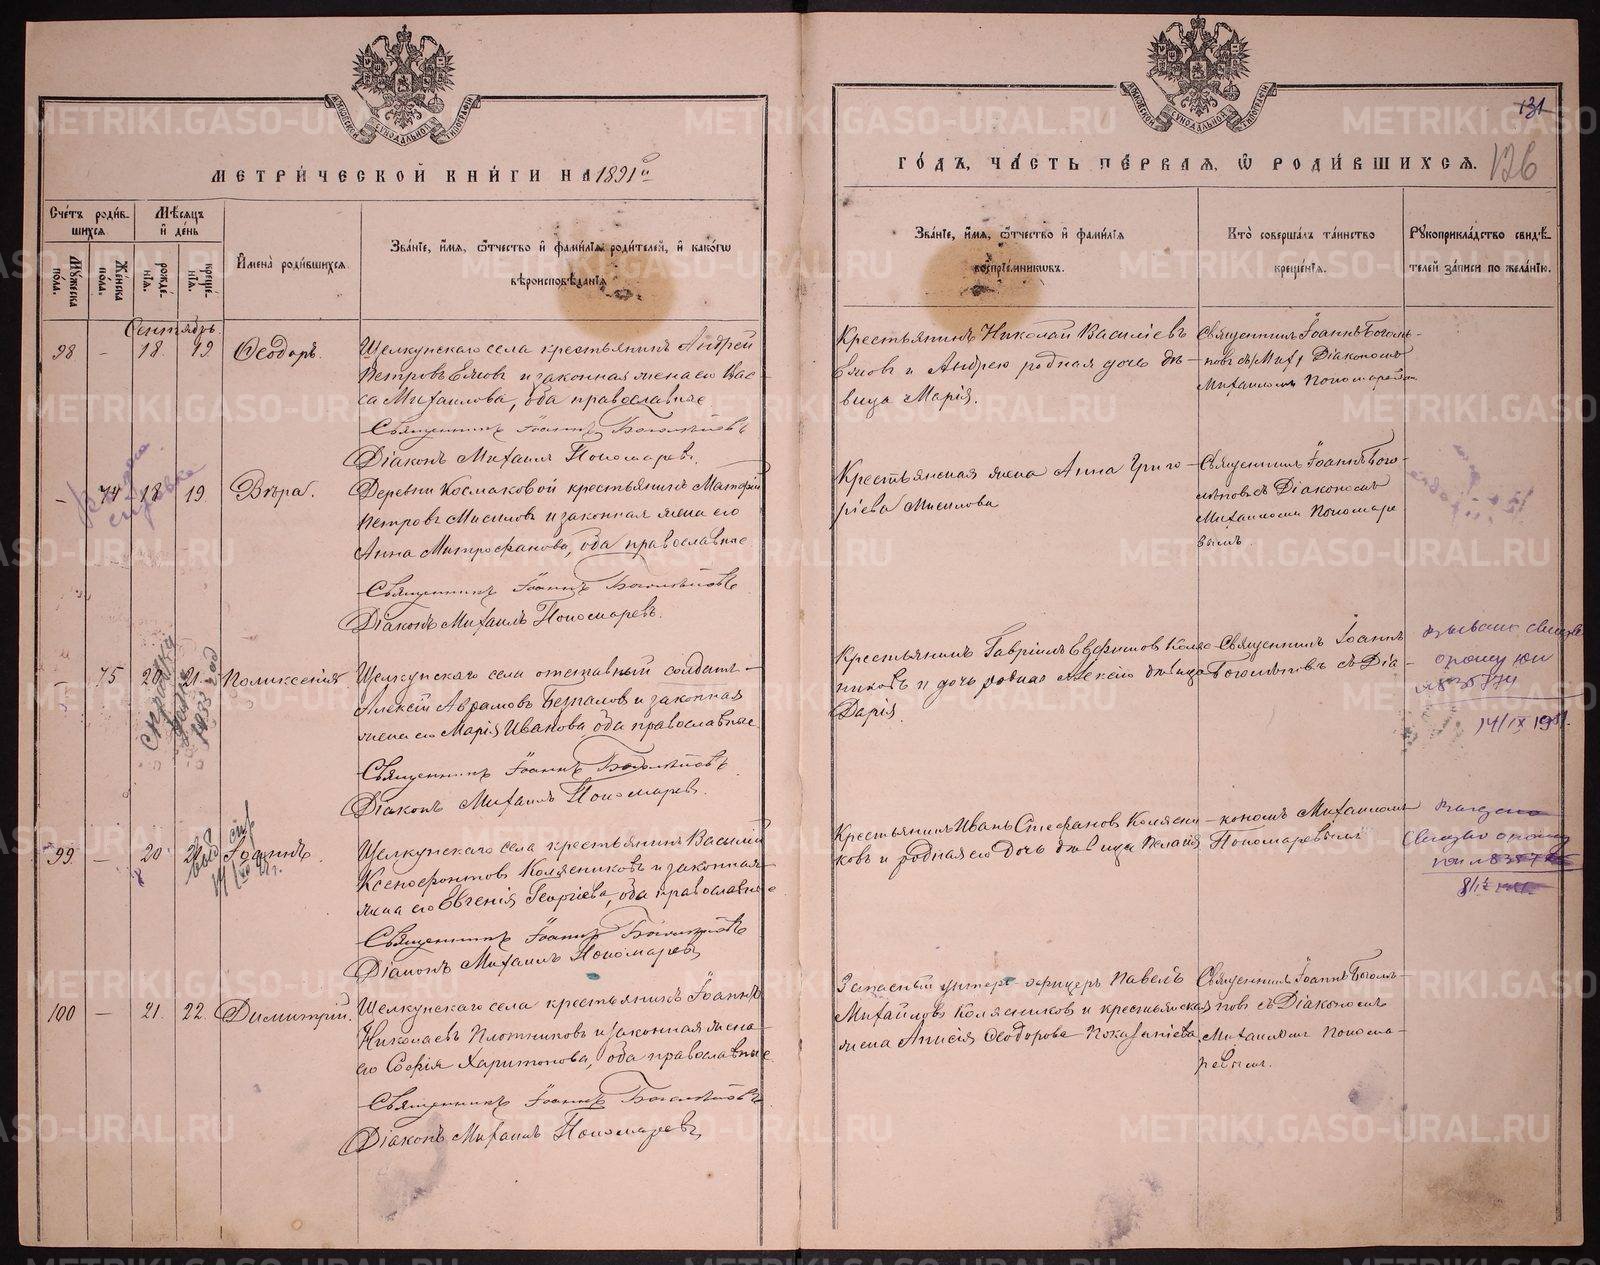 МЕТРИ́ЧЕСКОЙ КНИ́ГИ НА 1891й
Счётъ роди́в-
шихся
Мѣ́сяцъ
и҆ де́нь
Мꙋ́жеска по́ла.
Же́нска по́ла.
рожде́-
нїѧ.
креще́-
нїѧ.
И҆мена̀ роди́вшихсѧ
Зва́нїе, и҆́мѧ, ѻ҆́тчество и҆ фами́лїѧ роди́телей, и҆ како́гѡ
вѣроисповѣ́данїѧ
Сентябрь.
98 – 18. 19 Ѳеодоръ.
Щелкунскаго села крестьянинъ Андрей
Петровъ и законная жена его Вас-
са Михаилова, оба православные
Священникъ Іоаннъ Боголѣповъ
Діаконъ Михаилъ Пономаревъ.
– 74 18. 19. Вѣра.
Деревни Космаковой крестьянинъ Матфей
Петровъ Мисиловъ и законная жена его
Анна Митрофанова, оба православные
Священникъ Іоаннъ Боголѣповъ
Діаконъ Михаилъ Пономаревъ.
75 20 21. Поликсенія
Щелкунскаго села отставный солдатъ
Алексій Аврамовъ Безпаловъ и законная
жена его Марія Иванова оба православные
Священникъ Іоаннъ Боголѣповъ
Діаконъ Михаилъ Пономарев.
Справка
1933 год
99 – 20 Іоаннъ.
Щелкунскаго села крестьянинъ Василій
Ксенофонтовъ Колясниковъ и законная
жена его Евгенія Георгіева, оба православные
Священникъ Іоаннъ Боголѣповъ
Діаконъ Михаилъ Пономарев
100 – 21. 22. Димитрій.
Щелкунскаго села крестьянинъ Іоаннъ
Николаевъ Плотниковъ и законная жена
его Софія Харитонова, оба православные
Священникъ Іоаннъ Боголѣповъ
Діаконъ Михаилъ Пономаревъ
131
126
ГО́ДЪ, ЧА́СТЬ ПЕ́РВАЯ, Ѡ҆ РОДИ́ВШИХСЯ.
Зва́нїе, и҆́мѧ, ѻ҆́тчество и҆ фами́лїѧ
воспрїе́мникѡвъ.
Кто̀ соверша́лъ та́инство
креще́нїѧ.
Рꙋкоприкла́дство свидѣ́-
телей за́писи по жела́нїю.
Крестьянинъ Николай Василіевъ
и Андрею родная дочь дѣ-
вица Марія.
Священникъ Іоаннъ Боголѣ-
повъ съ Діакономъ
Михаиломъ Пономаревым
Крестьянская жена Анна Григо-
ріева Мисилова
Священникъ Іоаннъ Бого-
лѣповъ съ Діакономъ
Михаиломъ Пономаре
вымъ.
Крестьянинъ Гавріилъ Евфимов Коляс-
никовъ и дочь родная Алексію дѣвица
Дарія.
Священникъ Іоаннъ
Боголѣповъ съ Діа-
14/IX 19
Крестьянинъ Иванъ Стефановъ Колясни-
ковъ и родная его дочь дѣвица Пелагія
кономъ Михаиломъ
Пономаревымъ
Запасный унтеръ офицеръ Павелъ
Михайловъ Колясниковъ и крестьянская
жена Анисія Ѳеодорова
Священникъ Іоаннъ Боголѣ-
повъ съ Діакономъ
Михаиломъ Понома-
ревымъ.
METRIKI.GASO-URAL.RU